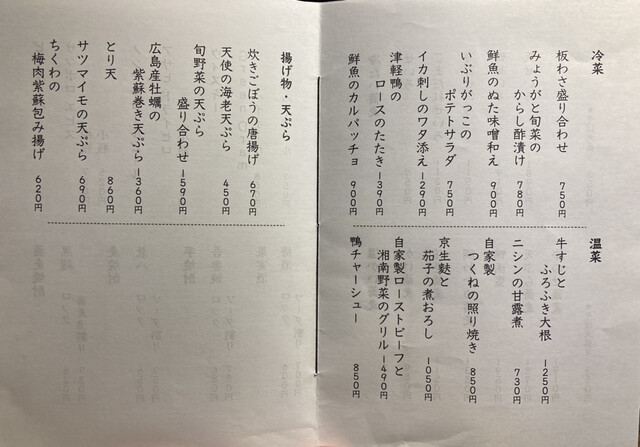 冷菜
板わさ盛り合わせ 750円
みょうがと旬菜の
からし酢漬け 780円
鮮魚のぬた味噌和え 900円
いぶりがっこの
ポテトサラダ 750円
イカ刺しのワタ添え 1290円
津軽鴨の
ロースのたたき 1390円
鮮魚のカルパッチョ 900円
温菜
牛すじと
ふろふき大根 1250円
ニシンの甘露煮 730円
自家製
つくねの照り焼き 850円
京生麩と
茄子の煮おろし 1050円
自家製ローストビーフと
湘南野菜のグリル 1490円
鴨チャーシュー 850円
揚げ物・天ぷら
炊きごぼうの唐揚げ 670円
天使の海老天ぷら 450円
旬野菜の天ぷら
盛り合わせ 1590円
広島産牡蠣の
紫蘇巻き天ぷら 1360円
とり天 860円
サツマイモの天ぷら 690円
ちくわの
梅肉紫蘇包み揚げ 620円